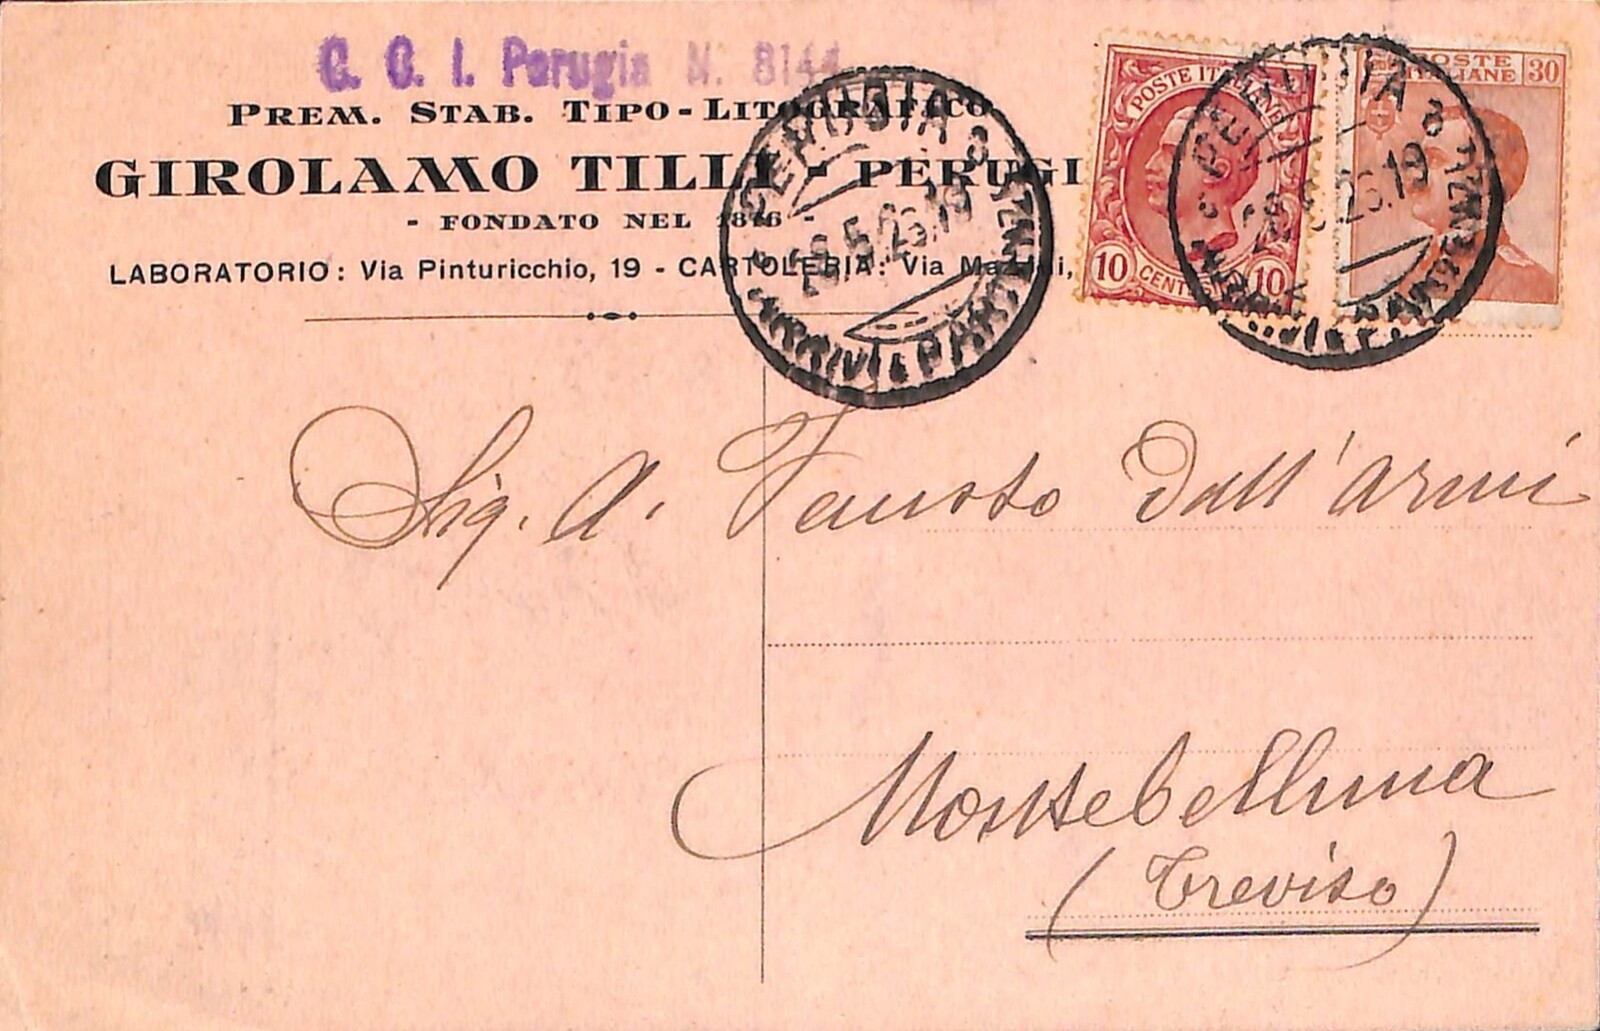 C. C. I. Perugia N. 8144
PREM. STAB. TIPO-LITOGRAFICO
GIROLAMO TILLI - PERUGI
- FONDATO NEL -
LABORATORIO: Via Pinturicchio, 19 - CARTOLERIA: Via
PERUGIA
26.5.26.19
ARRIVI E PARTENZE
POSTE ITALIANE
10 CENTESIMI 10
POSTE ITALIANE 30
PERUGIA
26.19
ARRIVI E PARTENZE
Sig. A. Fausto Dall'Armi
Montebelluna
(Treviso)